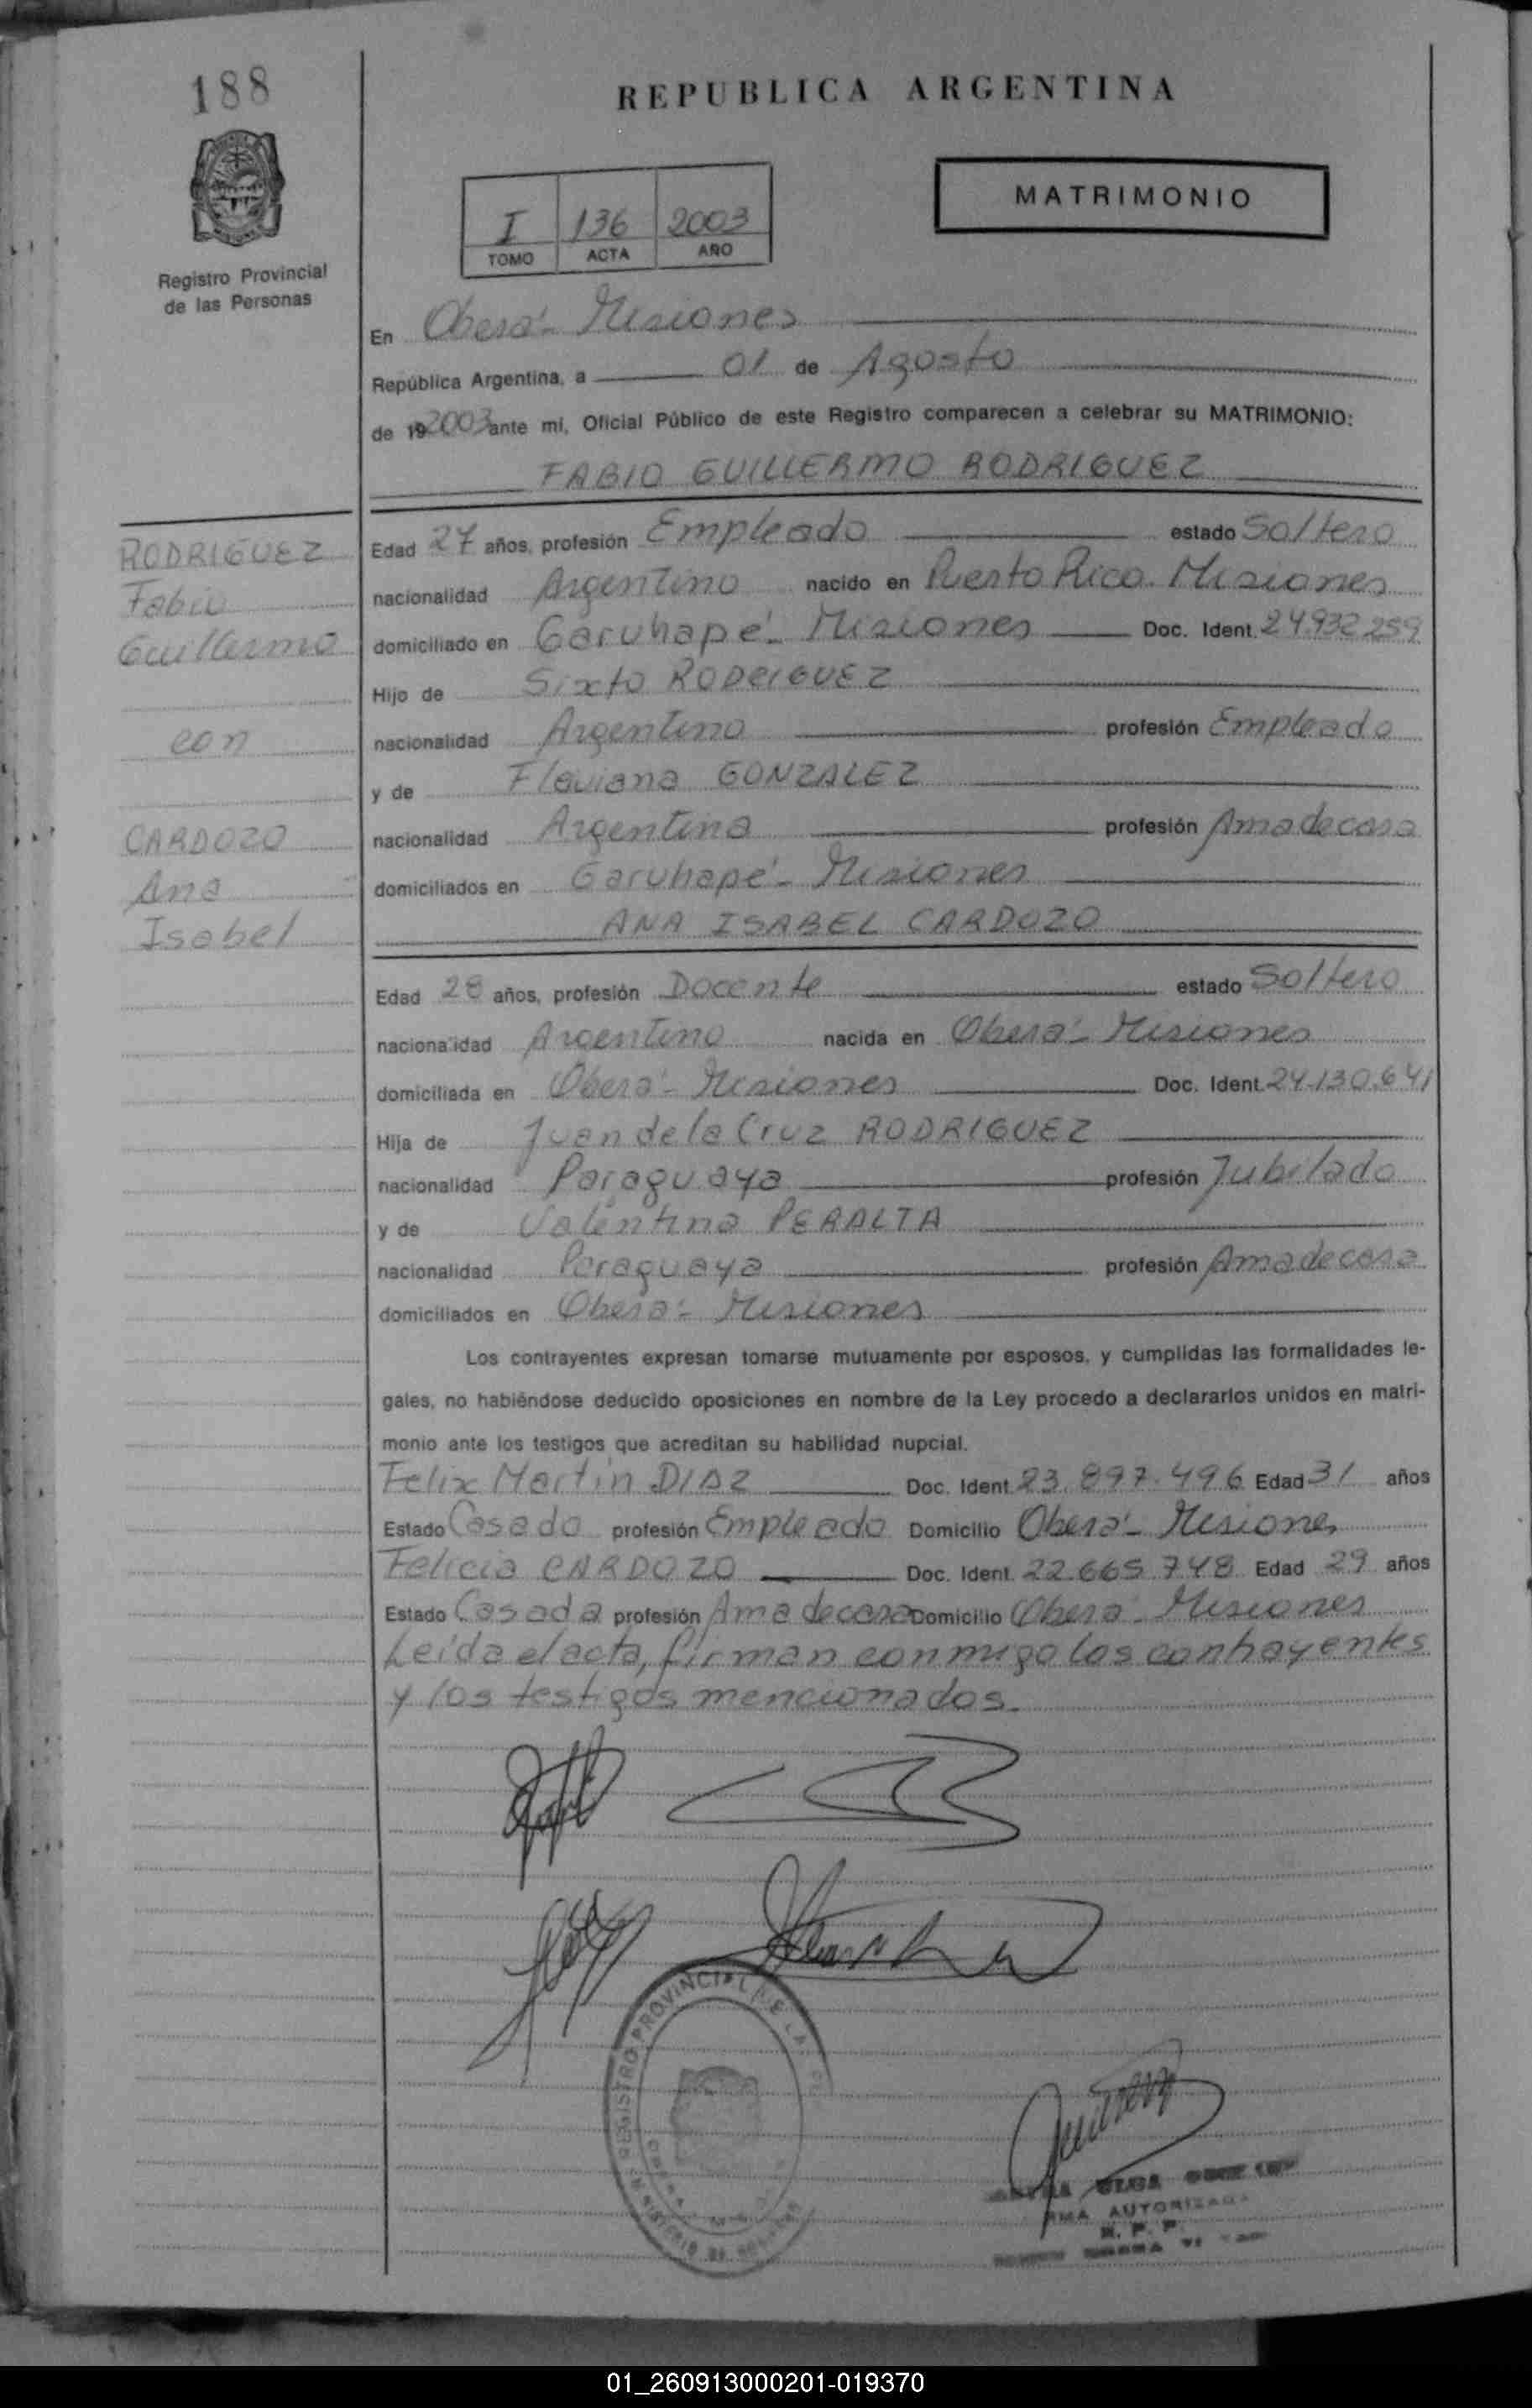 188
REPUBLICA ARGENTINA
MATRIMONIO
I 136 2003
TOMO ACTA AÑO
Registro Provincial
de las Personas
En Oberá - Misiones
República Argentina, a 01 de Agosto
de 192003 ante mi, Oficial Público de este Registro comparecen a celebrar su MATRIMONIO:
FABIO GUILLERMO RODRIGUEZ
RODRIGUEZ
Fabio
Guillermo
con
CARDOZO
Ana
Isabel
Edad 27 años, profesión Empleado estado Soltero
nacionalidad Argentino nacido en Puerto Rico - Misiones
domiciliado en Garuhapé - Misiones Doc. Ident. 24.932.259
Hijo de Sixto RODRIGUEZ
nacionalidad Argentina profesión Empleado
y de Flaviana GONZALEZ
nacionalidad Argentina profesión Ama de casa
domiciliados en Garuhapé - Misiones
ANA ISABEL CARDOZO
Edad 28 años, profesión Docente estado Soltero
nacionalidad Argentino nacida en Oberá - Misiones
domiciliada en Oberá - Misiones Doc. Ident. 24.130.641
Hija de Juan de la Cruz RODRIGUEZ
nacionalidad Paraguaya profesión Jubilado
y de Valentina PERALTA
nacionalidad Paraguaya profesión Ama de casa
domiciliados en Oberá - Misiones
Los contrayentes expresan tomarse mutuamente por esposos, y cumplidas las formalidades le-
gales, no habiéndose deducido oposiciones en nombre de la Ley procedo a declararlos unidos en matri-
monio ante los testigos que acreditan su habilidad nupcial.
Felix Martin DIAZ Doc. Ident. 23.897.496 Edad 31 años
Estado Casado profesión Empleado Domicilio Oberá - Misiones
Felicia CARDOZO Doc. Ident. 22.665.748 Edad 29 años
Estado Casada profesión Ama de casa Domicilio Oberá - Misiones
Leída el acta, firman conmigo los contrayentes
y los testigos mencionados.
REGISTRO PROVINCIAL DE LA
OLGA
AUTORIZADA
R. P. P.
01_260913000201-019370